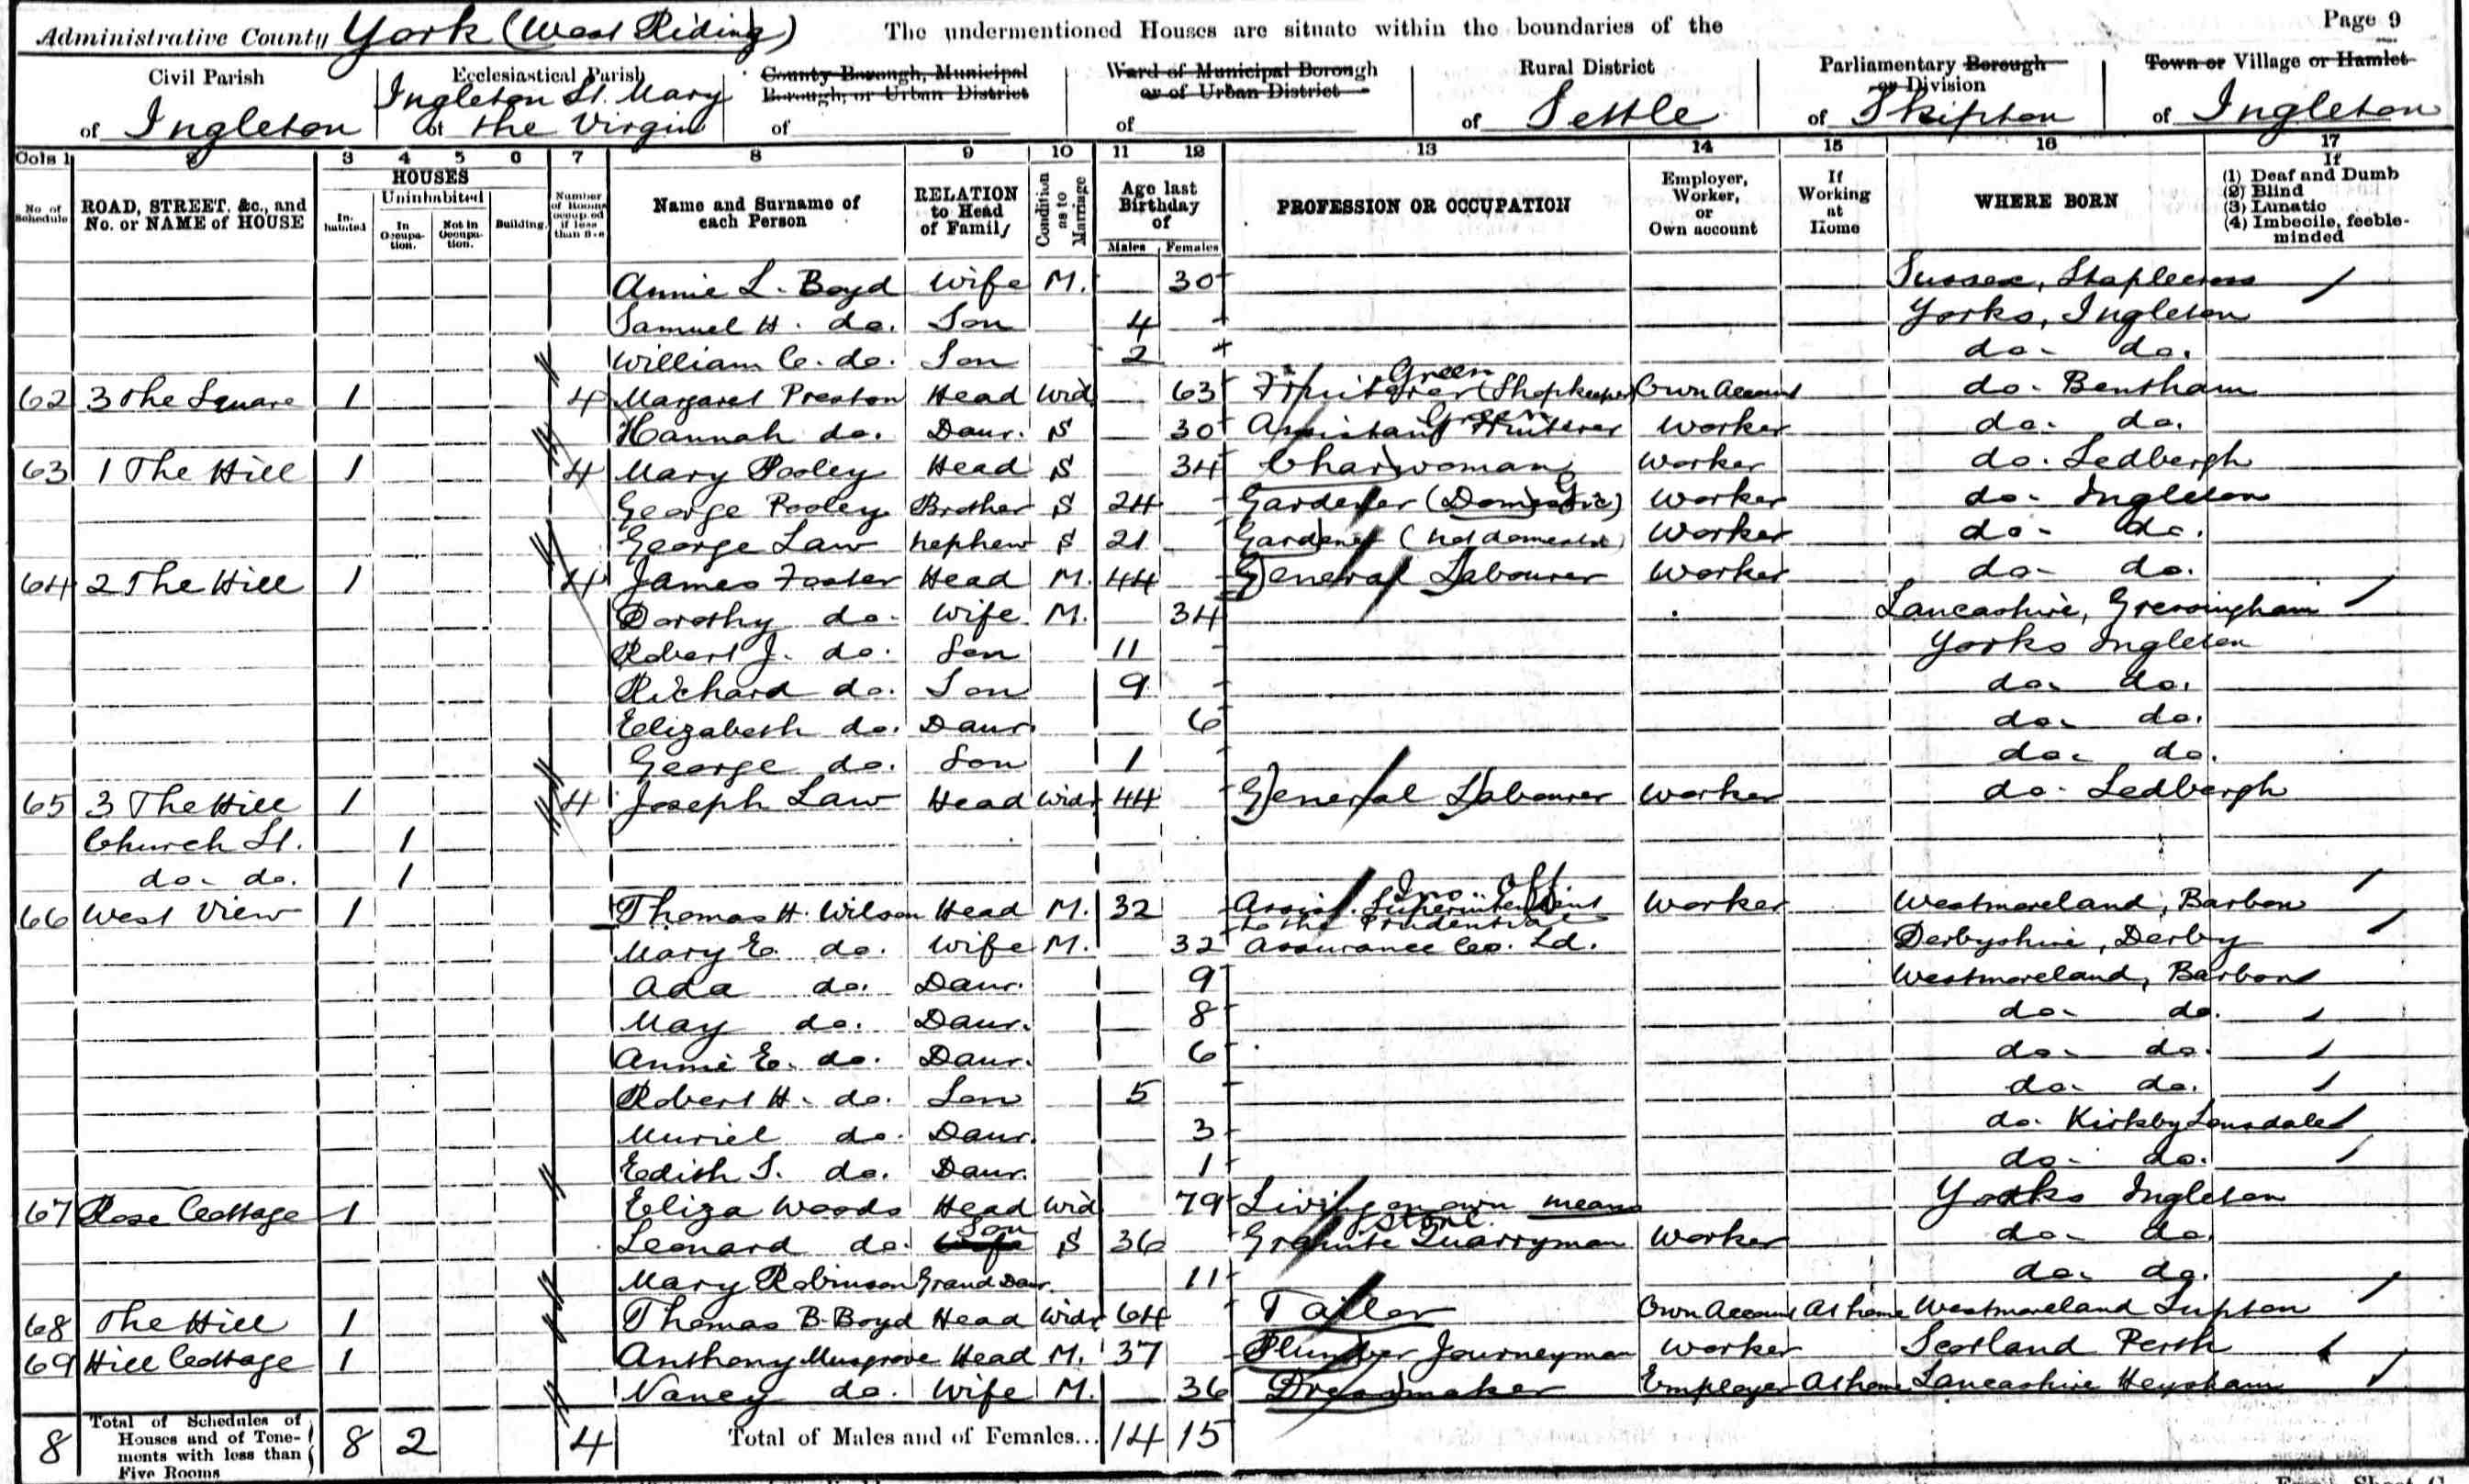 Page 9
Administrative County York (West Riding) The undermentioned Houses are situate within the boundaries of the
Civil Parish of Ingleton
Ecclesiastical Parish of Ingleton St. Mary the Virgin
County Borough, Municipal Borough, or Urban District of
Ward of Municipal Borough or of Urban District of
Rural District of Settle
Parliamentary Borough or Division of Skipton
Town or Village or Hamlet of Ingleton
Cols 1 2 3 4 5 6 7 8 9 10 11 12 13 14 15 16 17
No of Schedule
ROAD, STREET, &c., and No. or NAME of HOUSE
HOUSES
Inhabited
Uninhabited
In Occupation.
Not in Occupation.
Building.
Number of Rooms occupied if less than five
Name and Surname of each Person
RELATION to Head of Family
Condition as to Marriage
Age last Birthday of
Males Females
PROFESSION OR OCCUPATION
Employer, Worker, or Own account
If Working at Home
WHERE BORN
If (1) Deaf and Dumb (2) Blind (3) Lunatic (4) Imbecile, feeble-minded
Annie L. Boyd Wife M. 30 Sussex, Staplecross
Samuel H. do. Son 4 Yorks, Ingleton
William C. do. Son 2 do. do.
62 3 The Square 1 4 Margaret Preston Head Wid 63 Fruiterer (Shopkeeper) Green Own Account do. Bentham
Hannah do. Daur. S 30 Assistant Fruiterer Green Worker do. do.
63 1 The Hill 1 4 Mary Pooley Head S 34 Charwoman Worker do. Sedbergh
George Pooley Brother S 24 Gardener (Domestic) Worker do. Ingleton
George Law nephew S 21 Gardener (not domestic) Worker do. do.
64 2 The Hill 1 4 James Foster Head M. 44 General Labourer Worker do. do.
Dorothy do. Wife M. 34 Lancashire, Gressingham
Robert J. do. Son 11 Yorks Ingleton
Richard do. Son 9 do. do.
Elizabeth do. Daur. 6 do. do.
George do. Son 1 do. do.
65 3 The Hill 1 4 Joseph Law Head Widr 44 General Labourer Worker do. Sedbergh
Church St. 1
do. do. 1
66 West View 1 Thomas H. Wilson Head M. 32 Assist. Superintendent Ins. Off Worker Westmoreland, Barbon
to the Prudential
Mary E. do. Wife M. 32 Assurance Co. Ld. Derbyshire, Derby
Ada do. Daur. 9 Westmoreland, Barbon
May do. Daur. 8 do. do.
Annie E. do. Daur. 6 do. do.
Robert H. do. Son 5 do. do.
Muriel do. Daur. 3 do. Kirkby Lonsdale
Edith S. do. Daur. 1 do. do.
67 Rose Cottage 1 Eliza Woods Head Wid 79 Living on own means Yorks Ingleton
Leonard do. Wife Son S 36 Granite Quarryman Stone Worker do. do.
Mary Robinson Grand Daur. 11 do. do.
68 The Hill 1 Thomas B. Boyd Head Widr 64 Tailor Own Account At home Westmoreland Lupton
69 Hill Cottage 1 Anthony Musgrove Head M. 37 Plumber Journeyman Worker Scotland Perth
Nancy do. Wife M. 36 Dressmaker Employer At home Lancashire Heysham
8 Total of Schedules of Houses and of Tenements with less than Five Rooms 8 2 4 Total of Males and of Females... 14 15